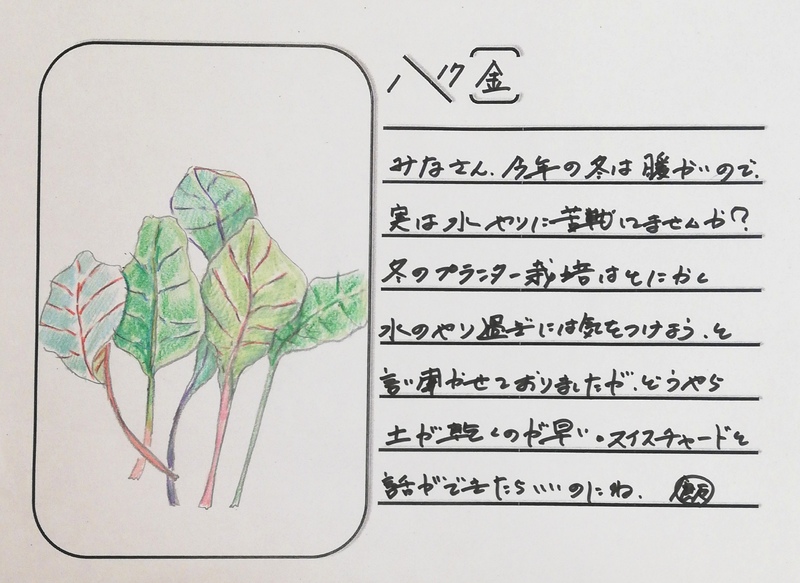 1/17 金
みなさん、今年の冬は暖かいので、
実は水やりに苦戦してませんか?
冬のプランター栽培はとにかく
水のやり過ぎには気をつけよう、と
言い聞かせておりましたが、どうやら
土が乾くのが早い。スイスチャードと
話ができたらいいのにね。